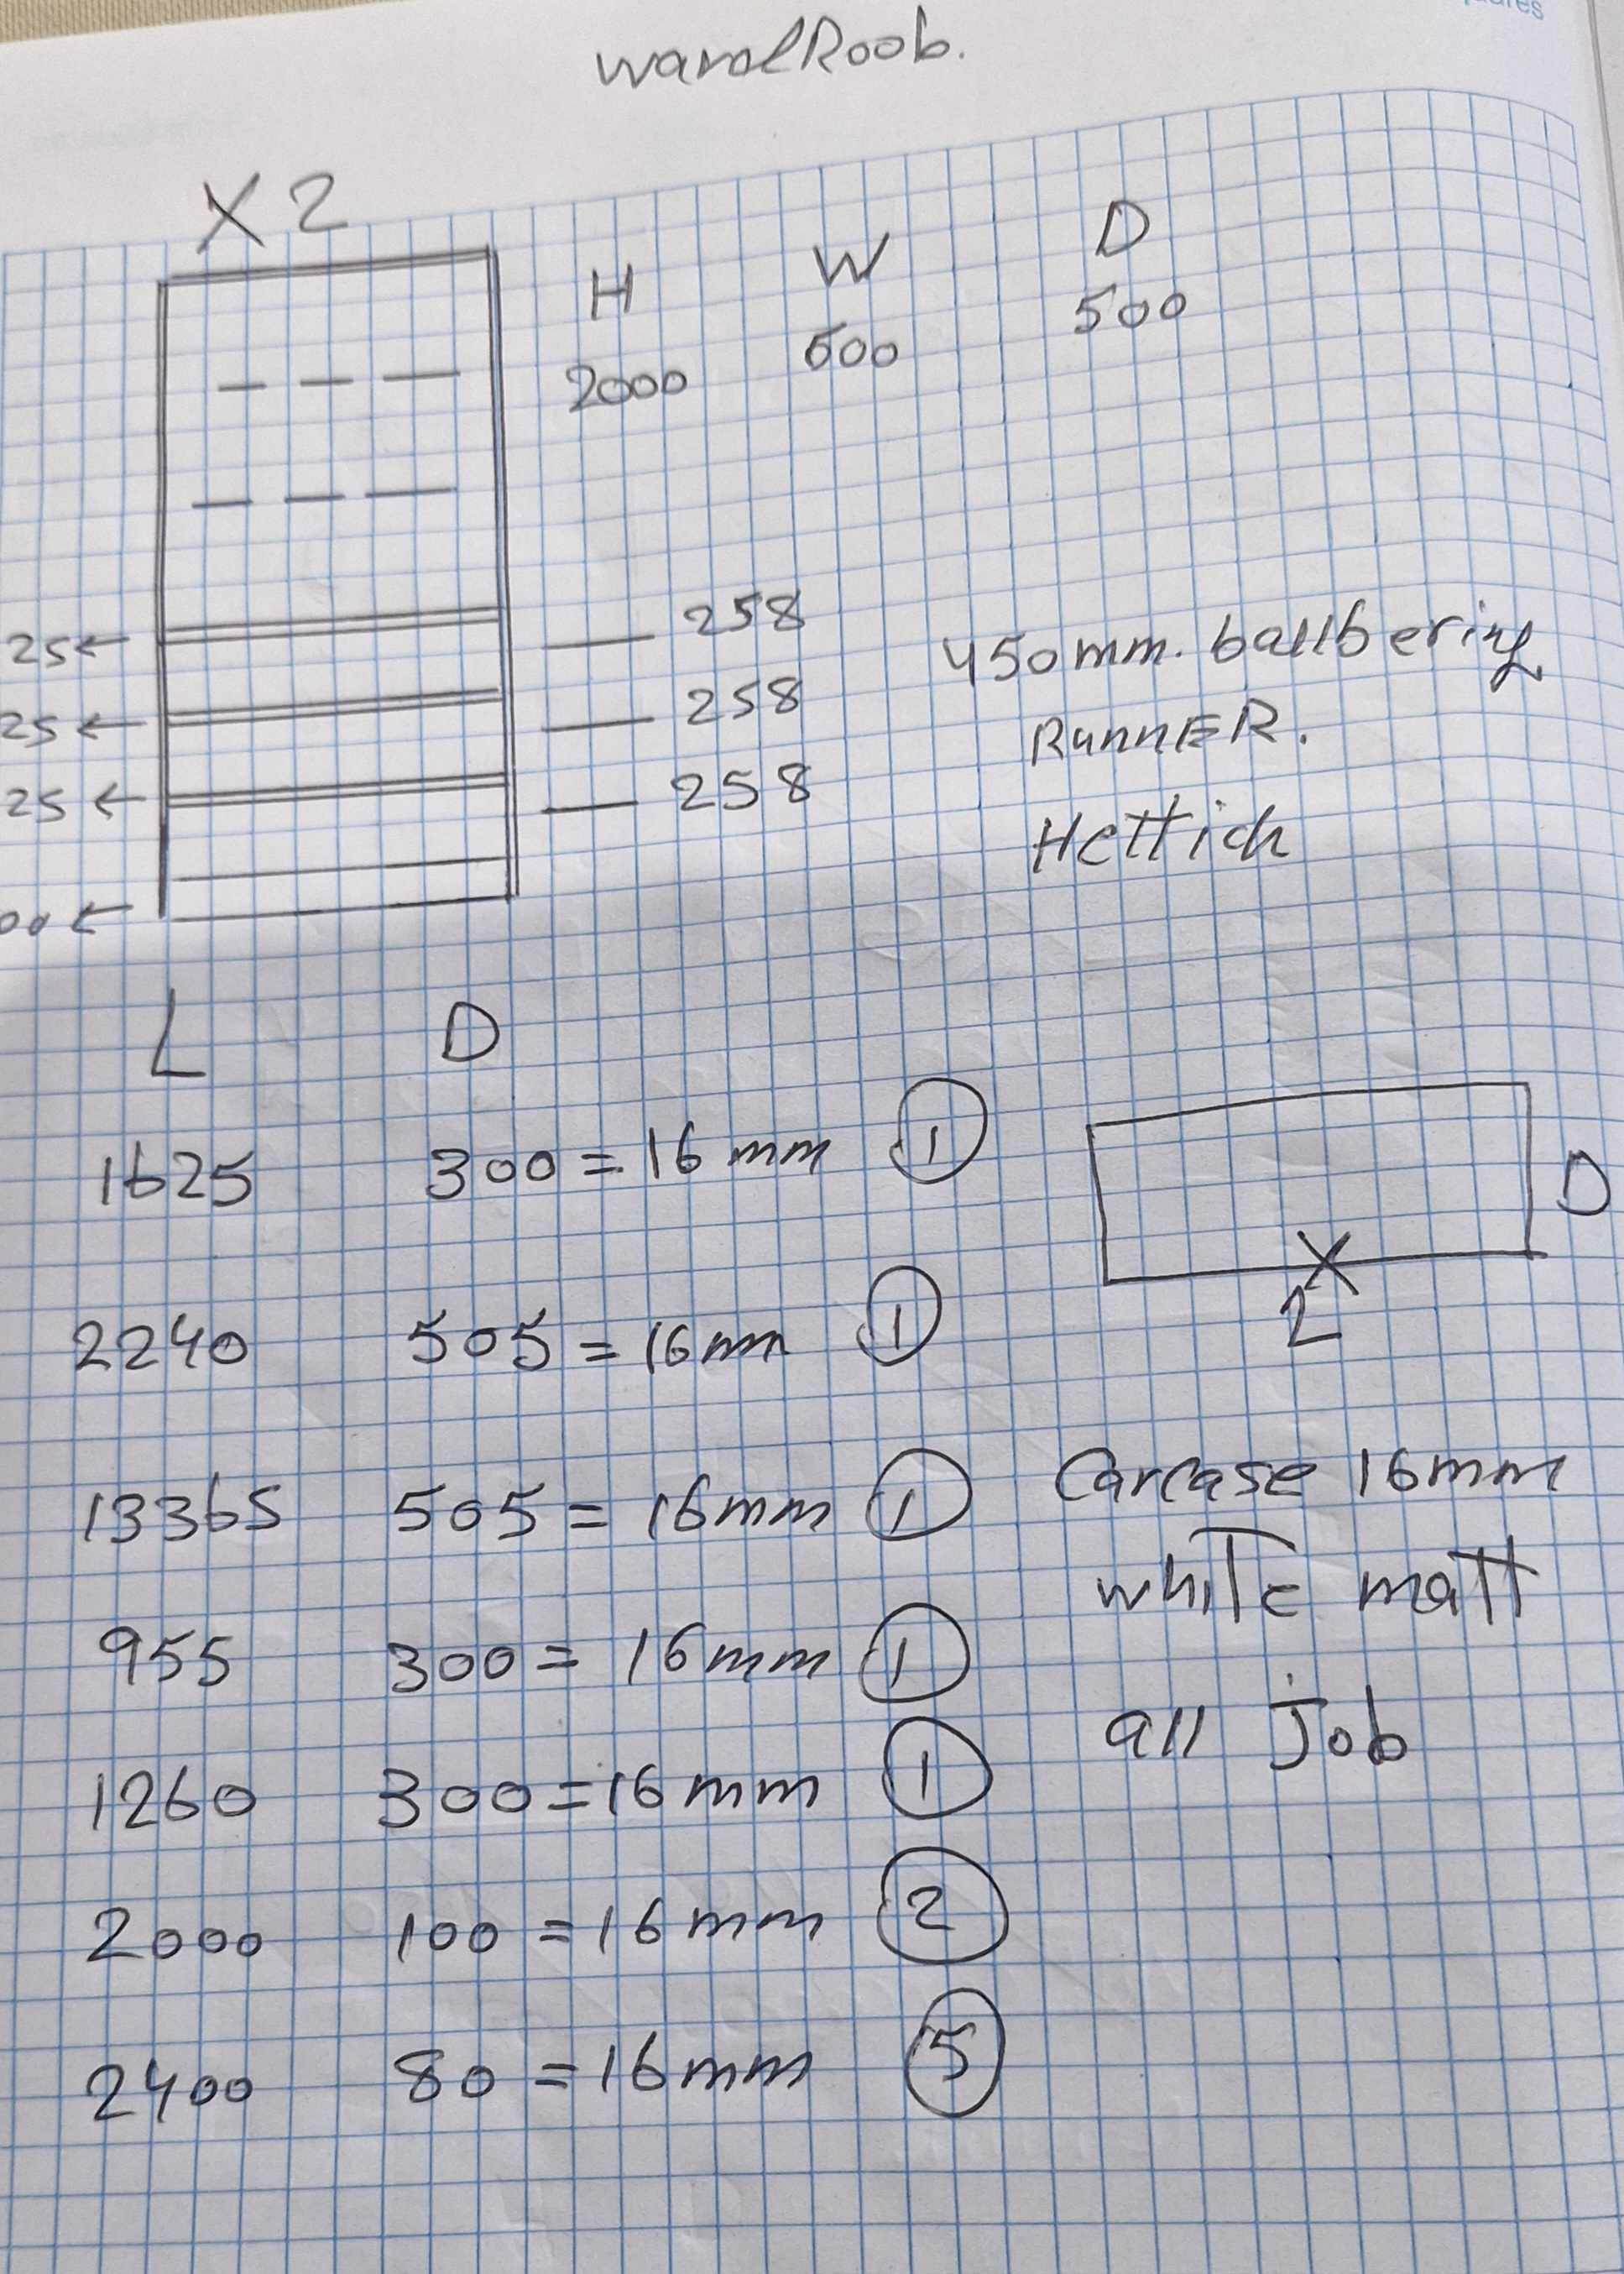 wardRoob.
X 2
H W D
2000 600 500
25 ← 258
25 ← 258
25 ← 258
00 ←
450mm. ballbering
RunnER.
Hettich
L D
1625 300 = 16 mm 1
2240 505 = 16mm 1
13365 505 = 16mm 1
955 300 = 16mm 1
1260 300 = 16mm 1
2000 100 = 16mm 2
2400 80 = 16mm 5
D
X
L
Carcase 16mm
white matt
all job